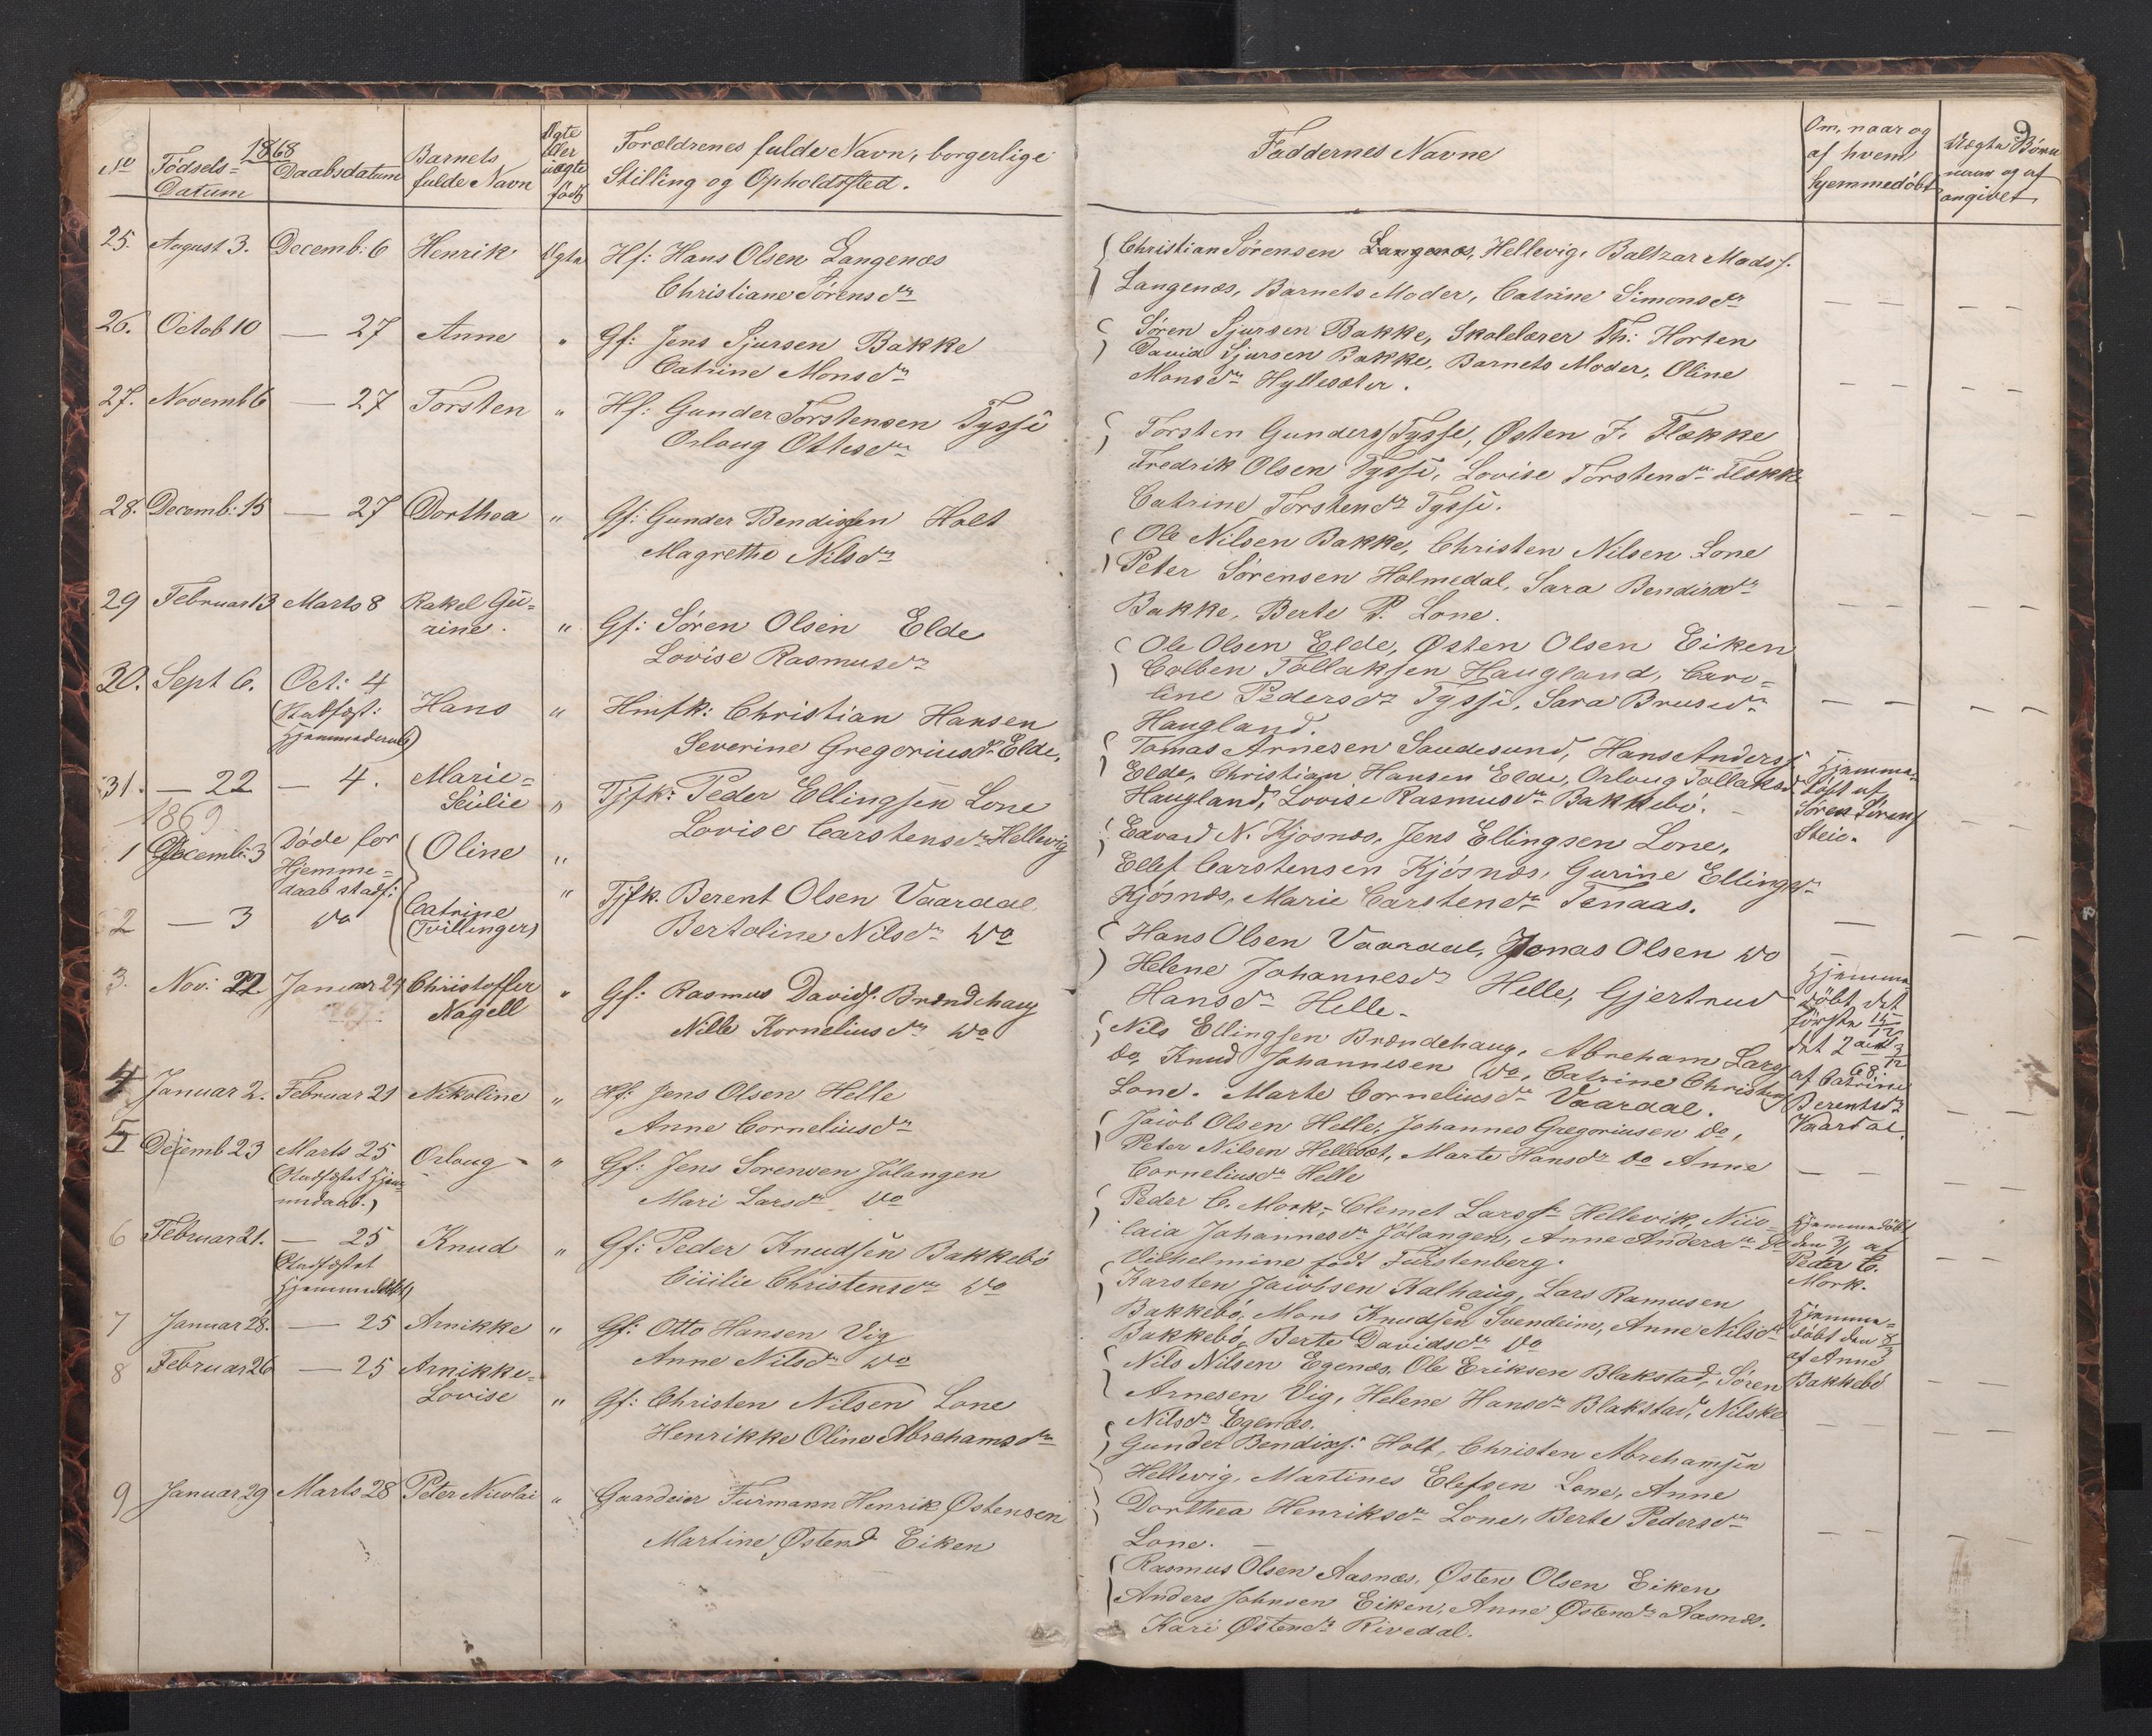 1868
No
Fødsels=
Datum
Daabsdatum
Barnets
fulde Navn
Ægte
eller
uægte
født
Forældrenes fulde Navn, borgerlige
Stilling og Opholdssted.
25. August 3. Decemb: 6 Henrik Ægte Hf: Hans Olsen Langenæs
Christiane Sørensdr
26. Octob 10 — 27 Anne " Gf: Jens Sjursen Bakke
Catrine Monsdr
27. Novemb 6 — 27 Torsten " Hf: Gunder Torstensen Tysse
Orloug Ottesdr
28. Decemb: 15 — 27 Dorthea " Gf: Gunder Bendixsen Holt
Magrethe Nilsdr
29 Februar 13 Marts 8 Rakel Gu=
rine. " Gf: Søren Olsen Elde
Lovise Rasmusdr
30. Sept 6. Oct: 4
(Stadfæst:
Hjemmedaab)
Hans " Hmfk: Christian Hansen
Severine Gregoriusdr Elde,
31. — 22 — 4. Marie=
Secilie " Tjfk: Peder Ellingsen Lone
Lovise Carstensdr Hellevig
1869
1 Decemb: 3 Døde før
Hjemme=
daab stadf:
Oline "
2 — 3 do Catrine
(Tvillinger)
" Tjfk. Berent Olsen Vaardal
Bertoline Nilsdr do
3. Nov: 22 Januar 24 Christoffer
Nagell " Gf: Rasmus Davids. Brændehaug
Nille Korneliusdr do
4 Januar 2. Februar 21 Nikoline " Hf: Jens Olsen Helle
Anne Corneliusdr
5 Decemb 23 Marts 25
(Stadfæstet Hjem=
medaab.)
Orloug " Gf: Jens Sørensen Jølangen
Mari Larsdr do
6 Februar 21. — 25
(Stadfæstet
Hjemmedaab)
Knud " Gf: Peder Knudsen Bakkebø
Ciiilie Christensdr do
7 Januar 28. — 25 Arnikke " Gf: Otto Hansen Vig
Anne Nilsdr do
8 Februar 26 — 25 Arnikke=
Lovise " Gf: Christen Nilsen Lone
Henrikke Oline Abrahamsdr
9 Januar 29 Marts 28 Peter Nicolai " Gaardeier Furmann Henrik Østensen
Martine Østend Eiken
9
Faddernes Navne
Om, naar og
af hvem
hjemmedøbt
Uægte Børn
naar og af
angivet
Christian Sørensen Langenæs, Hellevig, Baltzar Mads.
Langenæs, Barnets Moder, Catrine Simonsdr
Søren Sjursen Bakke, Skolelærer Th: Horten
David Sjursen Bakke, Barnets Moder, Oline
Monsdr Hyllesæter.
Torsten Gunders. Tysse, Østen J. Flække
Fredrik Olsen Tysse, Lovise Torstendr Flække
Catrine Torstendr Tysse.
Ole Nilsen Bakke, Christen Nilsen Lone
Peter Sørensen Holmedal, Sara Bendixdr
Bakke, Berte P. Lone.
Ole Olsen Elde, Østen Olsen Eiken
Colben Tollaksen Haugland, Caro=
line Pedersdr Tysse, Sara Brusedr
Haugland.
Tomas Arnesen Saudesund, Hans Anders.
Elde, Christian Hansen Elde, Orloug Tollaksd.
Haugland, Lovise Rasmusdr Bakkebø.
Hjemme=
døbt af
Søren Sørens.
Steie.
Edvard N. Kjosnæs, Jens Ellingsen Lone,
Ellef Carstensen Kjøsnæs, Gurine Ellingsdr
Kjøsnæs, Marie Carstendr Tenaas.
Hans Olsen Vaardal, Jonas Olsen do
Helene Johannesdr Helle, Gjertrud
Hansdr Helle.
Hjemme
døbt det
første 15/12
det 2det 3/12
68.
af Catrine
Berentsdr
Vaardal.
Nils Ellingsen Brændehaug, Abreham Lars.
do, Knud Johannesen do, Catrine Christens.
Lone. Marte Corneliusdr Vaardal.
Jacob Olsen Helle, Johannes Gregoriusen do,
Peter Nilsen Hellesæt, Marte Hansdr do Anne
Corneliusdr Helle
Peder C. Mork, Clemet Larssn Hellevik, Nico=
laia Johannesdr Jølangen, Anne Andersdr do
Vilhelmine født Fürstenberg.
Hjemmedøbt
den 3/1 af
Peder C.
Mork.
Karsten Jacobsen Kalhaug, Lars Ramusen
Bakkebø, Mons Knudsen Svendeim, Anne Nilsdr
Bakkebø, Berte Davidsdr do
Hjemme=
døbt den 8/3
af Anne
Bakkebø
Nils Nilsen Egenæs, Ole Eriksen Blakstad, Søren
Arnesen Vig, Helene Hansdr Blakstad, Nilske
Nilsdr Egenæs.
Gunder Bendixs. Holt, Christen Abrehamsen
Hellevig, Martines Elefsen Lone, Anne
Dorthea Henriksdr Lone, Berte Pedersdr
Lone.
Rasmus Olsen Aasnæs, Østen Olsen Eiken
Anders Johnsen Eiken, Anne Østendr Aasnæs.
Kari Østendr Rivedal.